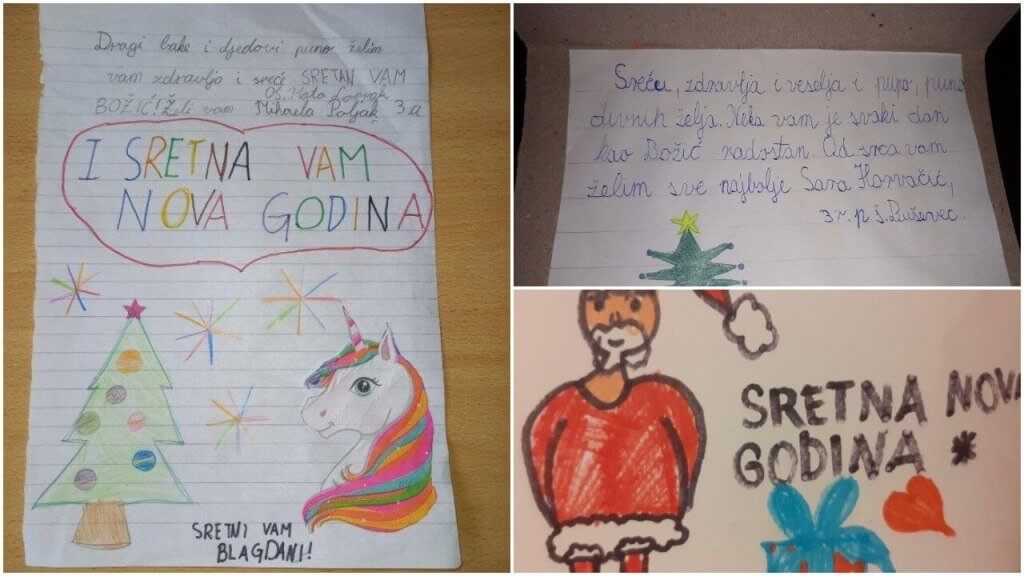 Dragi bake i djedovi puno želim
vam zdravlja i sreće SRETAN VAM
OŠ. Mato Lovrak
BOŽIĆ! Želi vam Mihaela Poljak 3.a
I SRETNA VAM
NOVA GODINA
SRETNI VAM
BLAGDANI!
Sreću, zdravlja i veselja i puno, puno
divnih želja. Neka vam je svaki dan
kao Božić radostan. Od srca vam
želim sve najbolje Sara Horvačić,
3.r. p.š. Ruševec.
SRETNA NOVA
GODINA *